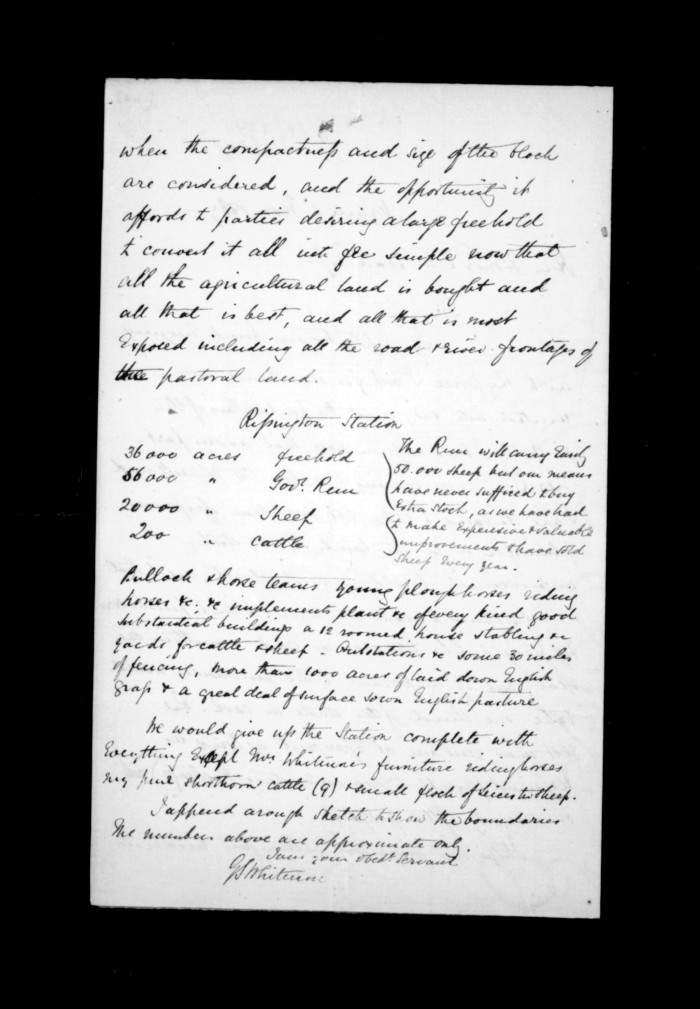 when the compactness and size of the block
are considered, and the opportunity it
affords to parties desiring a large freehold
to convert it all into fee simple now that
all the agricultural land is bought and
all that is best, and all that is most
Exposed including all the road & river frontages of
the pastoral land.
Rissington Station
36000 acres freehold
56000 " Govt. Run
20000 " Sheep
200 " Cattle
The Run will carry Easily
50.000 sheep but our means
have never sufficed to buy
Extra Stock, as we have had
to make Expensive & valuable
improvements & have sold
Sheep Every year.
Bullock & horse teams young plough horses riding
horses &c. &c implements plant &c of every kind good
substantial buildings a 12 roomed house Stabling &c
yards for cattle & sheep - Outstations &c some 30 miles
of fencing, more than 1000 acres of laid down English
grass & a great deal of surface sown English pasture
We would give up the Station complete with
Everything Except Mrs Whitmore's furniture riding horses
my pure shorthorn cattle (9) & small flock of Leicester sheep.
I append a rough Sketch to show the boundaries
The numbers above are approximate only.
I am your obedt Servant
G S Whitmore